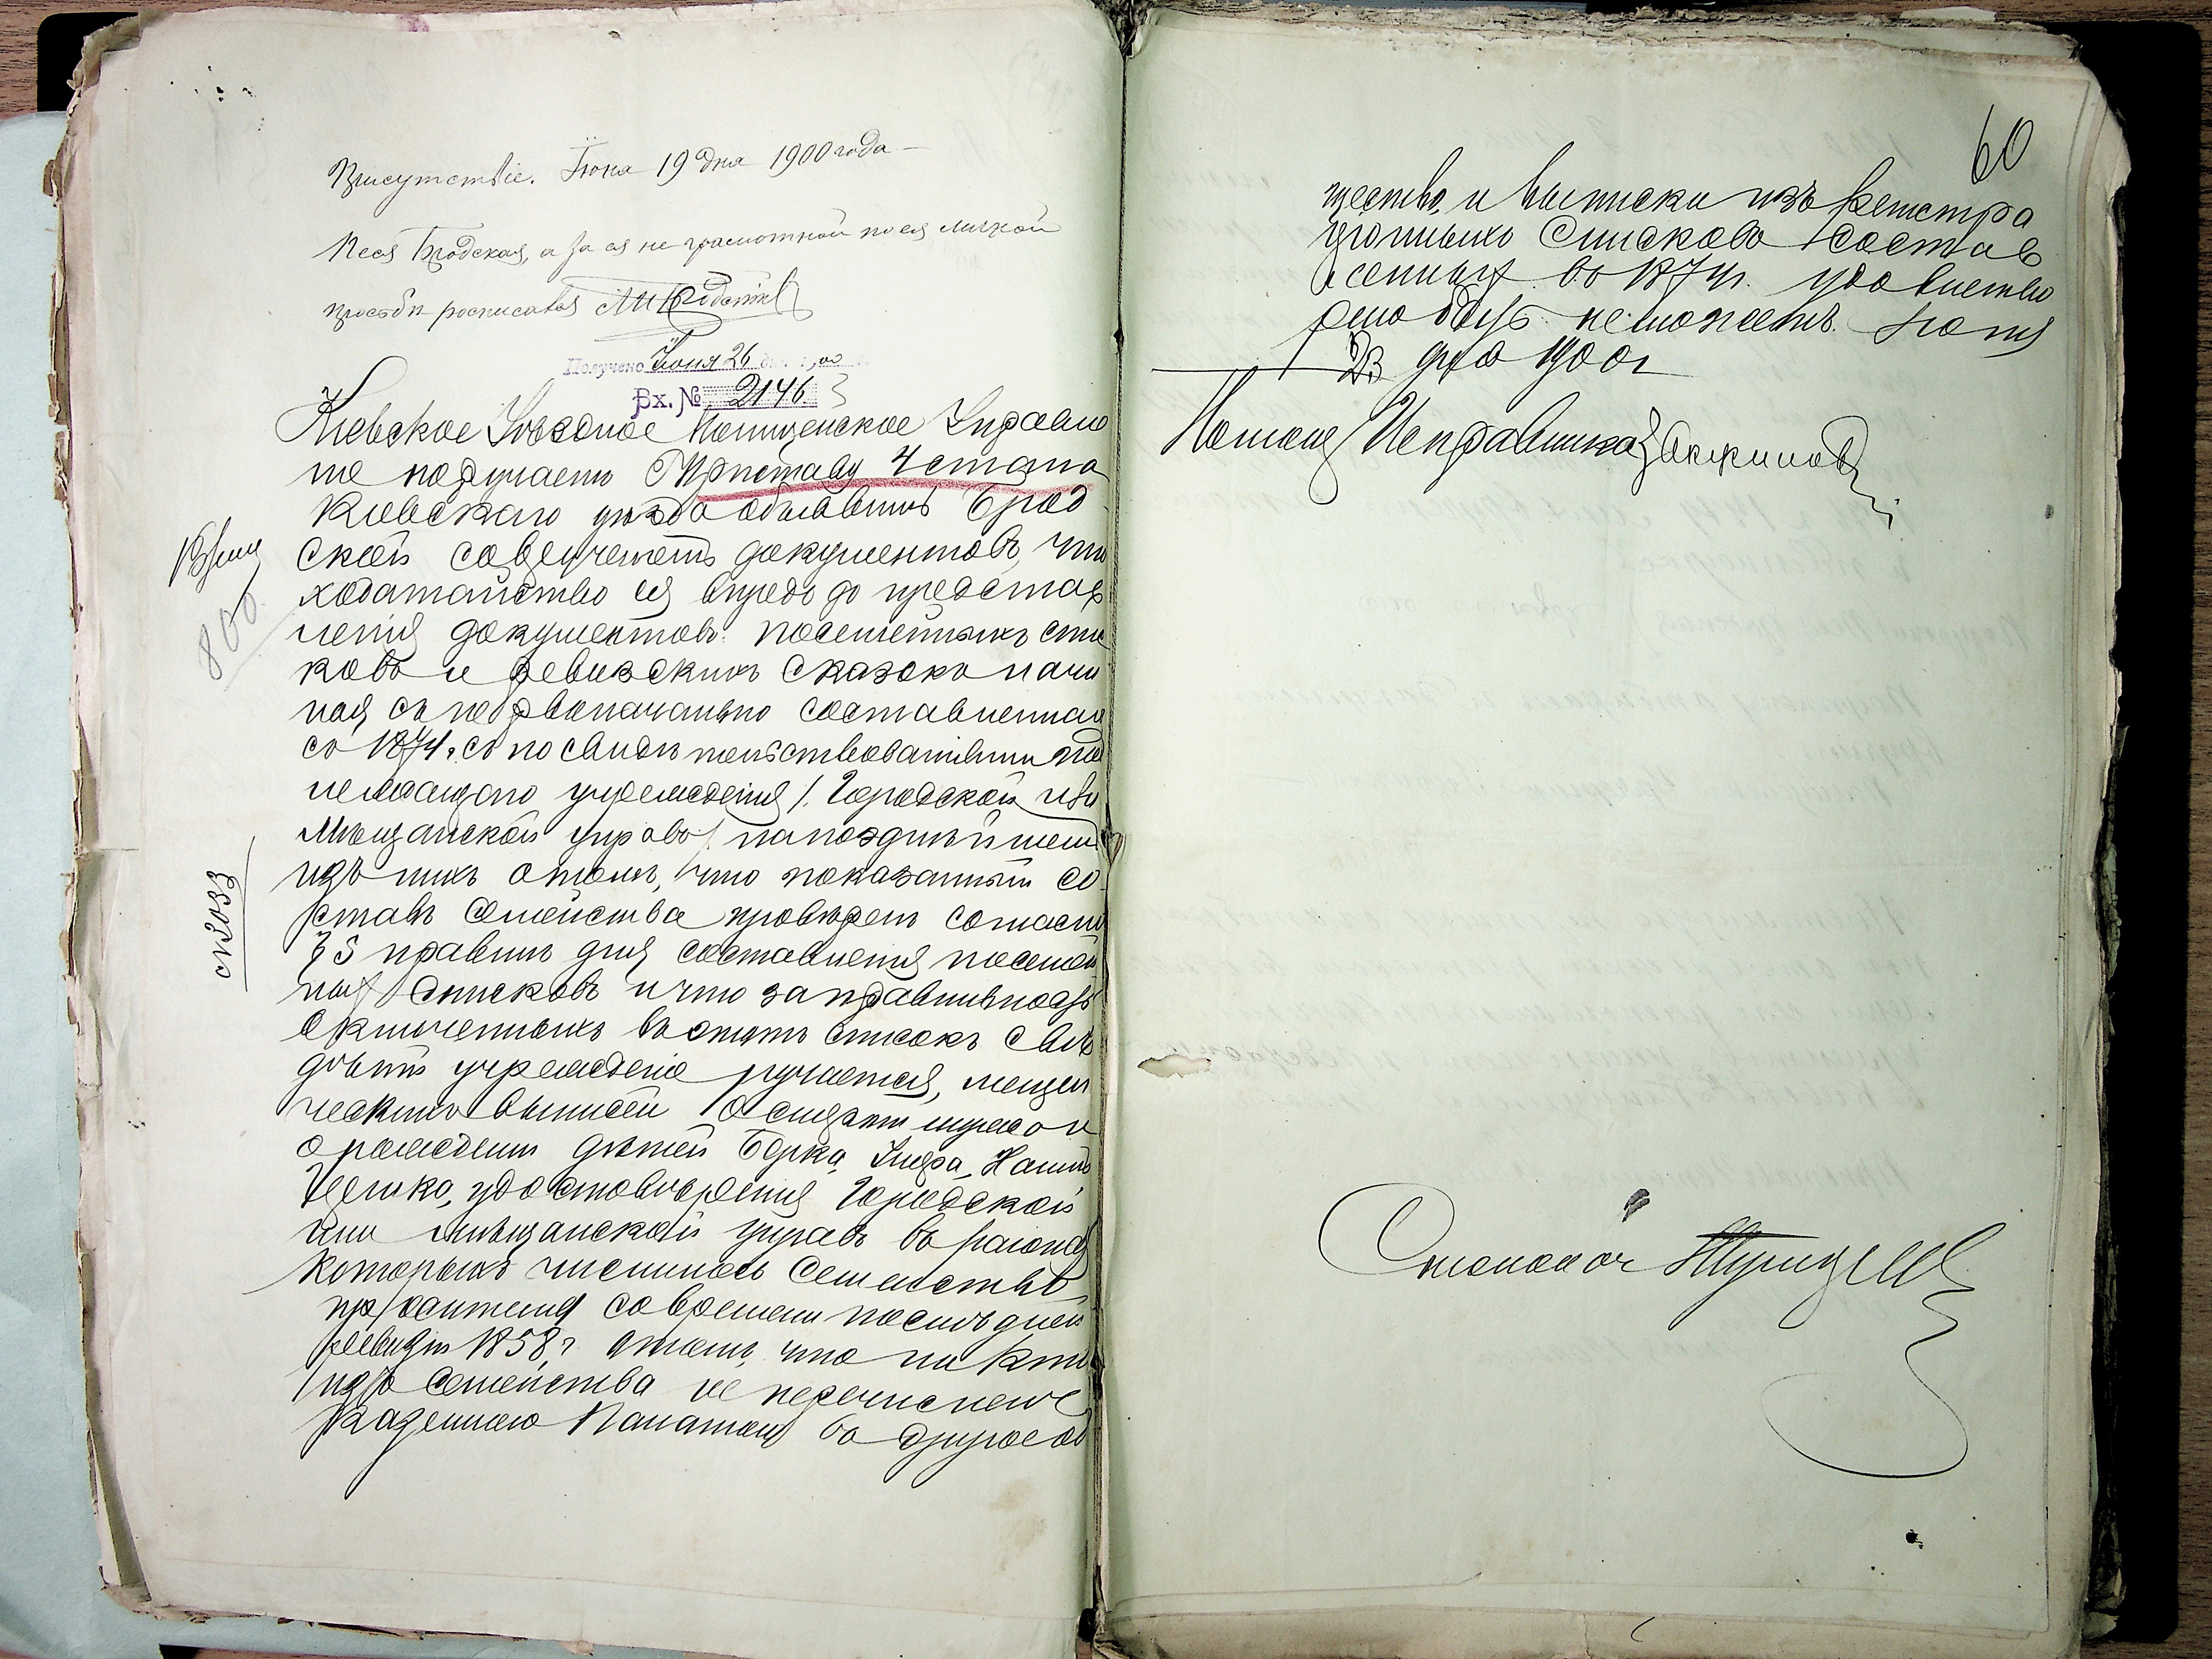 Присутствіе. Іюня 19 дня 1900 года —
Песя Бродская, а за ея не грамотной по ея личной
просьбѣ росписался
Получено Іюня 26 дн. 1900
Вх. № 2146
Кіевское Уѣздное Полицейское Управле
ніе поручаетъ Г Приставу 4 стана
Кіевскаго уѣзда объявить Брод
ской съ документовъ, что
ходатайство ея впредь до представ
ленія документовъ: посемейныхъ спис
ковъ и ревизскихъ сказокъ начи
ная съ первоначально составленнаго
съ 1874 г. съ по свидѣтельствованіемъ под
лежащаго учрежденія /. Городской или
Мѣщанской управъ / на позднѣйшемъ
изъ нихъ о томъ, что показанный со
ставъ семейства провѣренъ согласно
§ 5 правилъ для составленія посемей
ныхъ Списковъ и что за правильность
включенныхъ въ этотъ списокъ свѣ
дѣній учрежденіе ручается, метри
ческихъ выписей о смерти мужа и
о рожденіи дѣтей Берка, Умера,
удостовѣренія Городской
или мѣщанской управъ въ районѣ
которыхъ числилось Семейство
просительницы со времени послѣдней
ревизіи 1858 г. о томъ, что ни кто
изъ Семейства не перечисленъ
Казенною Палатою въ другое об
№ 2033
800
60
щество, и выписки изъ регистра
ціонныхъ Списковъ состав
ленныхъ въ 1874 г. удовлетво
рено быть не можетъ. Іюня
23 дня 1900 г
Помощ Исправника
Столоначальникъ